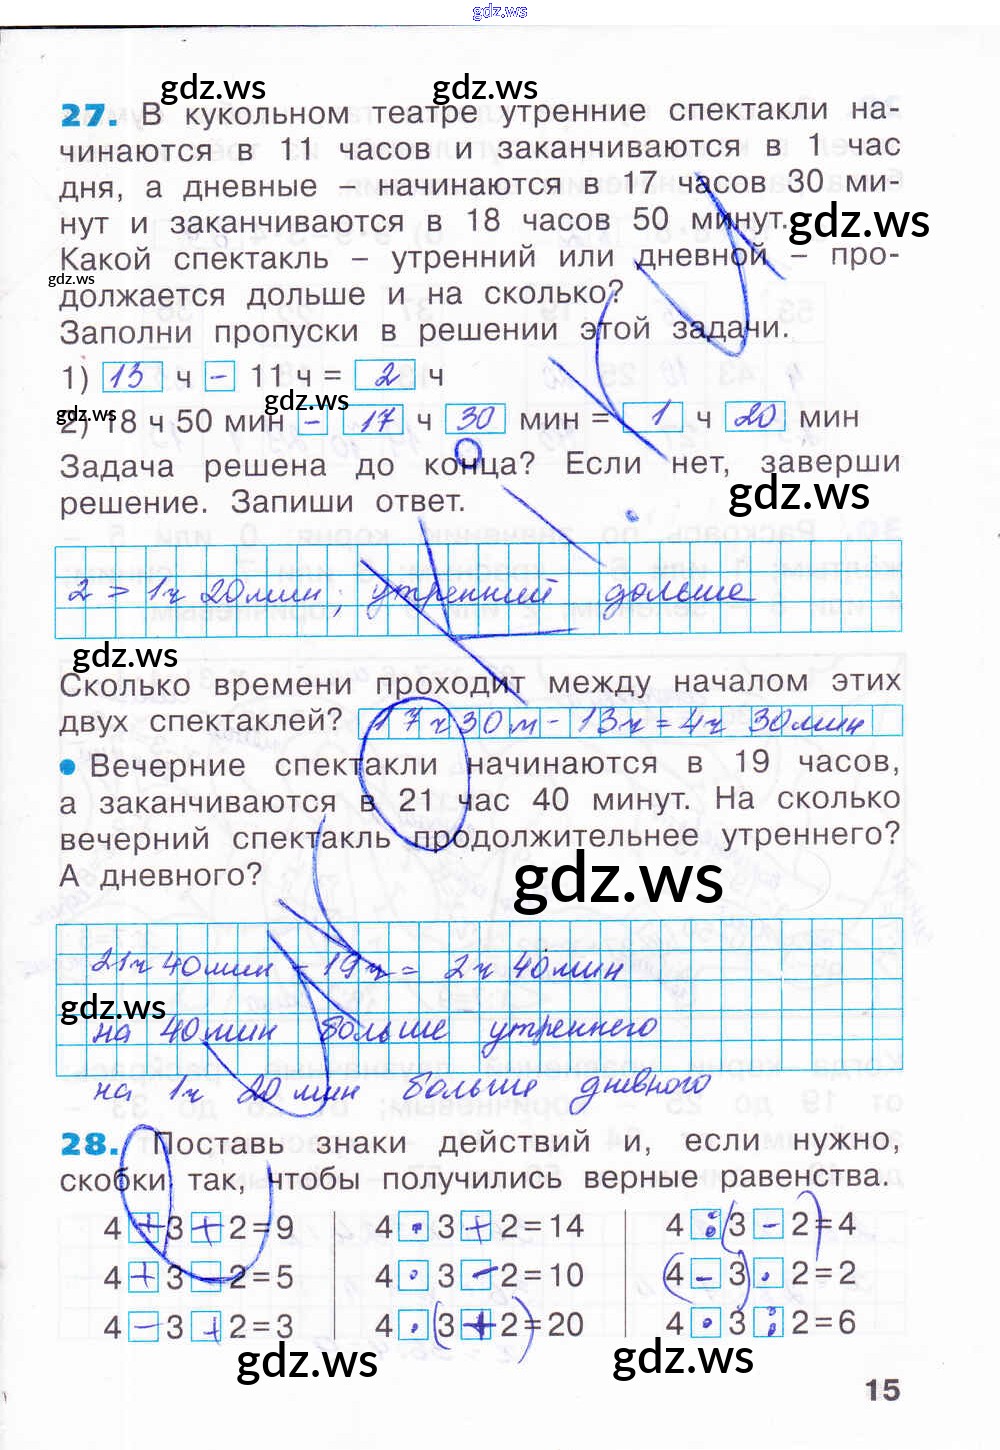 gdz.ws
gdz.ws gdz.ws
27. В кукольном театре утренние спектакли на-
чинаются в 11 часов и заканчиваются в 1 час
дня, а дневные – начинаются в 17 часов 30 ми-
нут и заканчиваются в 18 часов 50 минут.
gdz.ws
Какой спектакль – утренний или дневной – про-
gdz.ws
должается дольше и на сколько?
Заполни пропуски в решении этой задачи.
1) 13 ч – 11 ч = 2 ч
gdz.ws gdz.ws
2) 18 ч 50 мин – 17 ч 30 мин = 1 ч 20 мин
Задача решена до конца? Если нет, заверши
решение. Запиши ответ.
gdz.ws
2 > 1ч 20мин; утренний дольше
gdz.ws
Сколько времени проходит между началом этих
двух спектаклей? 17ч30м – 13ч = 4ч 30мин
• Вечерние спектакли начинаются в 19 часов,
а заканчиваются в 21 час 40 минут. На сколько
вечерний спектакль продолжительнее утреннего?
А дневного?
gdz.ws
21ч 40мин – 19ч = 2ч 40мин
gdz.ws
на 40мин больше утреннего
на 1ч 20 мин больше дневного
28. Поставь знаки действий и, если нужно,
скобки так, чтобы получились верные равенства.
4 + 3 + 2 = 9 4 · 3 + 2 = 14 4 : (3 – 2) = 4
4 + 3 – 2 = 5 4 · 3 – 2 = 10 (4 – 3) · 2 = 2
4 – 3 + 2 = 3 4 · (3 + 2) = 20 4 · 3 : 2 = 6
gdz.ws gdz.ws
15